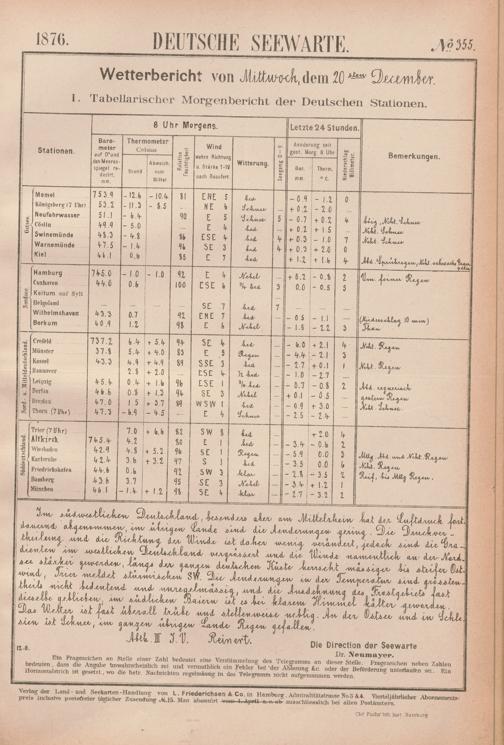 1876. DEUTSCHE SEEWARTE. No 355.
Wetterbericht von Mittwoch, dem 20sten December.
I. Tabellarischer Morgenbericht der Deutschen Stationen.
8 Uhr Morgens. Letzte 24 Stunden.
Stationen. Barometer auf 0° und den Meeresspiegel reducirt, mm. Thermometer Celsius Stand Abweich. vom Mittel Relative Feuchtigkeit Wind wahre Richtung u. Stärke 1-12 nach Beaufort. Witterung. Seegang 0-9. Aenderung seit gest. Morg. 8 Uhr Bar. mm. Therm. °C. Niederschlag Millimeter Bemerkungen.
Ostsee.
Memel 753.9 -12.6 -10.4 81 ENE 5 bed -0.9 -1.2 0
Königsberg (7 Uhr) 53.2 -11.3 -8.5 NE 4 Schnee +0.2 -2.0
Neufahrwasser 51.1 -6.4 92 E 5 Schnee 5 -0.7 +0.2 4 Schnee
Cöslin 49.9 -5.0 E 4 bed +0.2 +1.5 Ncht. Schnee.
Swinemünde 48.3 -4.8 86 ESE 4 bed 4 +0.3 -1.0 7 Ncht. Schnee
Warnemünde 47.5 -1.4 96 SE 3 bed 4 +0.3 +2.0 0
Kiel 46.1 0.6 85 E 7 bed +1.2 +1.6 4
Nordsee
Hamburg 745.0 -1.0 -1.0 92 E 4 Nebel +0.2 -0.8 2
Cuxhaven 44.0 0.6 100 ESE 6 bed 3 0.0 -0.5 3
Keitum auf Sylt
Helgoland SE 7 bed 7
Wilhelmshaven 43.3 0.7 92 ENE 7 bed -0.5 -1.1 (Niederschlag 10 mm)
Borkum 40.9 1.2 98 E 6 Nebel -1.5 -2.2 3 Thau
Nord- u. Mitteldeutschland.
Crefeld 737.2 6.4 +5.4 94 SE 4 bed -4.0 +2.1 4 Ncht. Regen.
Münster 37.8 5.4 +4.0 83 E 5 Regen -4.4 -2.1 3
Kassel 43.3 4.9 +4.9 89 SSE 3 bed -2.7 +0.1 1 Ncht. Regen
Hannover 2.8 +2.0 ESE 4 bed -1.0 -2.7
Leipzig 45.6 0.4 +1.6 94 ESE 1 bed -0.7 -0.8 2 Abd. regnerisch
Berlin 46.6 0.8 +1.3 94 SE 3 Nebel +0.1 -0.5 gestern Regen
Breslau 47.0 1.5 +3.7 89 WSW 1 bed -0.9 +3.0 Ncht. Schnee.
Thorn (7 Uhr) 47.3 -6.9 -4.5 E 4 Schnee -2.5 -2.4
Süddeutschland.
Trier (7 Uhr) 7.0 +6.6 82 SW 8 bed +2.0 4
Altkirch 745.4 4.2 80 E 1 bed -3.4 -0.6 2
Wiesbaden 42.9 4.8 +5.2 96 SE 1 Regen -5.9 0.0 3 Mttg. Abd. und Ncht. Regen
Karlsruhe 42.4 3.6 +3.2 97 S 1 bed -3.5 0.0 6 Ncht. Regen.
Friedrichshafen 44.6 0.6 92 SW 3 klar -2.8 -3.5 2 Reif, bis Mttg. Regen.
Bamberg 43.6 3.7 95 SE 3 Nebel -3.4 +1.2 1
München 46.1 -1.4 +1.2 98 SE 4 klar -2.7 -3.2 2
Im südwestlichen Deutschland, besonders aber am Mittelrhein hat der Luftdruck fort-
dauernd abgenommen, im übrigen Lande sind die Aenderungen gering. Die Druckver-
theilung und die Richtung der Winde ist daher wenig verändert, jedoch sind die Gra-
dienten im westlichen Deutschland vergrössert und die Winde namentlich an der Nord-
see stärker geworden, längs der ganzen deutschen Küste herrscht mässiger bis steifer Ost-
wind, Trier meldet stürmischen SW. Die Aenderungen in der Temperatur sind grössten-
theils nicht bedeutend und unregelmässig, und die Ausdehnung des Frostgebiets fast
dieselbe geblieben, im südlichen Baiern ist es bei klarem Himmel kälter geworden.
Das Wetter ist fast überall trübe und stellenweise neblig. An der Ostsee und in Schle-
sien ist Schnee, im ganzen übrigen Lande Regen gefallen.
Abth. III J.V. Reinert.
Die Direction der Seewarte
Dr. Neumayer.
Ein Fragezeichen an Stelle einer Zahl bedeutet eine Verstümmelung des Telegramms an dieser Stelle. Fragezeichen neben Zahlen
bedeuten, dass die Angabe unwahrscheinlich ist und vermuthlich ein Fehler bei der Ablesung &c. oder der Beförderung unterlaufen sei. Ein
Horizontalstrich ist gesetzt, wo die betr. Nachrichten regelmässig in das Telegramm nicht aufgenommen werden.
Verlag der Land- und Seekarten-Handlung von L. Friederichsen & Co. in Hamburg, Admiralitätstrasse No 3 & 4. Vierteljährlicher Abonnements-
preis inclusive portofreier täglicher Zusendung M. 15. Man abonnirt ausschliesslich bei allen Postämtern.